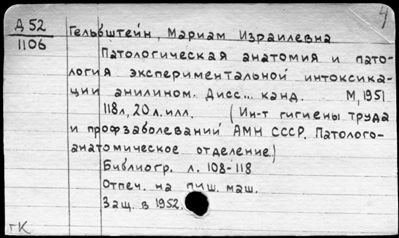 Д 52
1106
4
Гельбштейн, Мариам Израилевна
Патологическая анатомия и пато-
логия экспериментальной интоксика-
ции анилином. Дисс... канд. М, 1951
118л, 20 л. илл. (Ин-т гигиены труда
и профзаболеваний АМН СССР. Патолого-
анатомическое отделение.)
Библиогр. л. 108-118
Отпеч. на пиш. маш.
Защ. в 1952.
гК